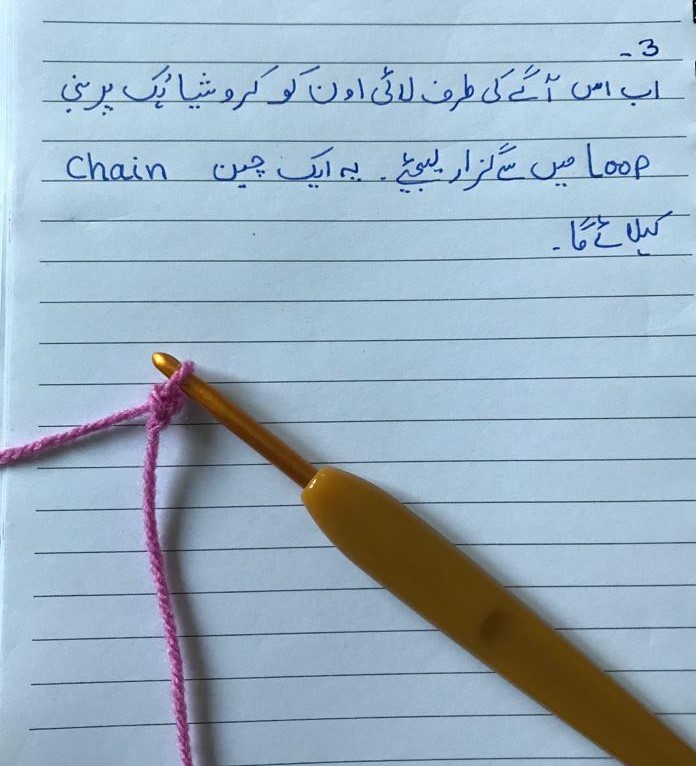 3-
اب اس آگے کی طرف لائی اون کو کروشیا ہُک پر بنی
Loop میں سے گزار لیجئے۔ یہ ایک چین Chain
کہلائے گا۔